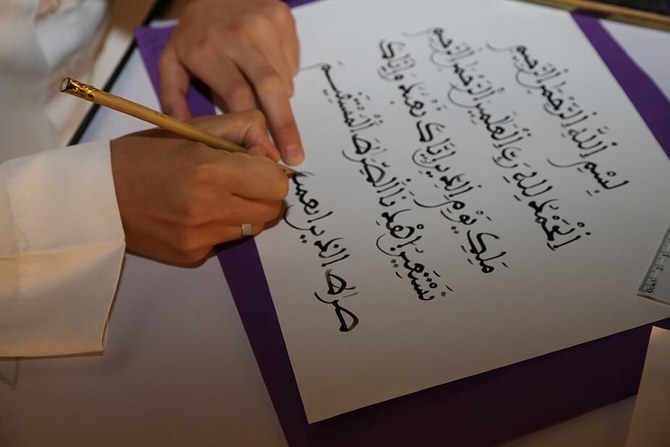 بِسْمِ اللَّهِ الرَّحْمَنِ الرَّحِيمِ
اَلْحَمْدُ لِلَّهِ رَبِّ الْعَلَمِينَ الرَّحْمَنِ الرَّحِيمِ
مَلِكِ يَوْمِ الدِّينِ إِيَّاكَ نَعْبُدُ وَإِيَّاكَ
نَسْتَعِينُ اهْدِنَا الصِّرَاطَ الْمُسْتَقِيمَ
صِرَاطَ الذين انعمت